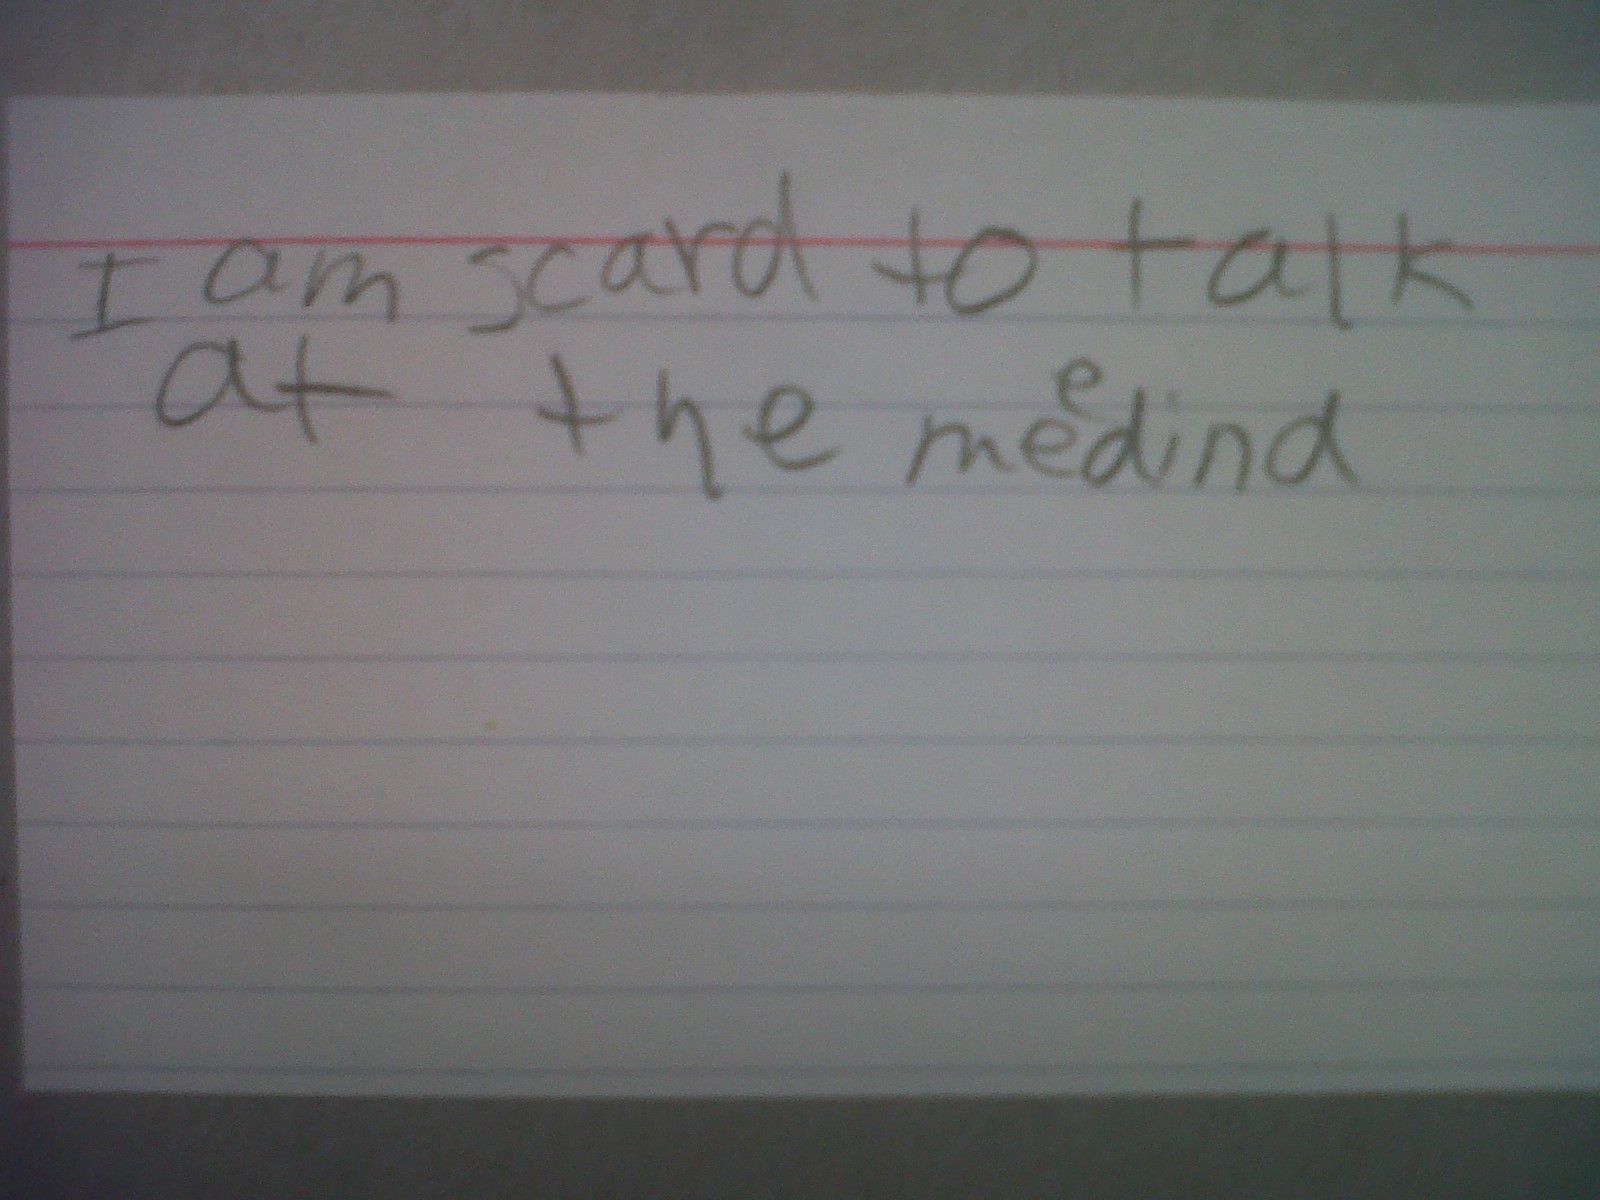 I am scard to talk
at the meedind